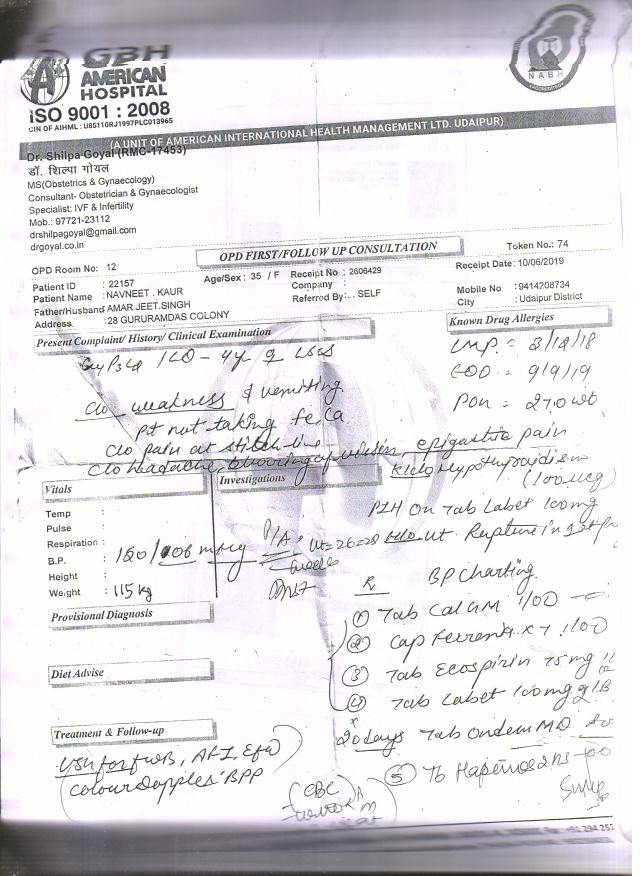 GBH
AMERICAN
HOSPITAL
iSO 9001 : 2008
CIN OF AIHML : U85110RJ1997PLC013965
NABH
ACCREDITED
(A UNIT OF AMERICAN INTERNATIONAL HEALTH MANAGEMENT LTD. UDAIPUR)
Dr. Shilpa Goyal (RMC-17453)
डॉ. शिल्पा गोयल
MS(Obstetrics & Gynaecology)
Consultant- Obstetrician & Gynaecologist
Specialist: IVF & Infertility
Mob.: 97721-23112
drshilpagoyal@gmail.com
drgoyal.co.in
OPD FIRST/FOLLOW UP CONSULTATION
Token No.: 74
OPD Room No: 12
Receipt Date: 10/06/2019
Patient ID : 22157
Age/Sex : 35 / F
Receipt No : 2606429
Patient Name : NAVNEET . KAUR
Company :
Mobile No : 9414208734
Father/Husband AMAR JEET.SINGH
Referred By: . SELF
City : Udaipur District
Address : 28 GURURAMDAS COLONY
Present Complaint/ History/ Clinical Examination
Known Drug Allergies
LMP = 3/12/18
EDD = 9/9/19
POG = 27.0 wk
LSCS
c/o weakness & vomiting
pt not taking fe, Ca
c/o pain at stitch line
c/o headache, blurring of vision, epigastric pain
k/c/o Hypothyroidism
(100 mcg)
PIH on Tab Labet 100mg
Vitals
Investigations
Temp :
Pulse :
Respiration :
B.P. : 160/106 mmHg
Height :
Weight : 115 kg
P/A = ut = 26-28 weeks
H/o ut. Rupture in
Rx BP Charting
Provisional Diagnosis
① Tab Calcium 1 OD
② Cap Ferrenta x 1 OD
Diet Advise
③ Tab Ecospirin 75mg
④ Tab Labet 100mg
20 days Tab Ondem MD
Treatment & Follow-up
USG for fwB, AFI, Efw
Colour Doppler, BPP
CBC
⑤